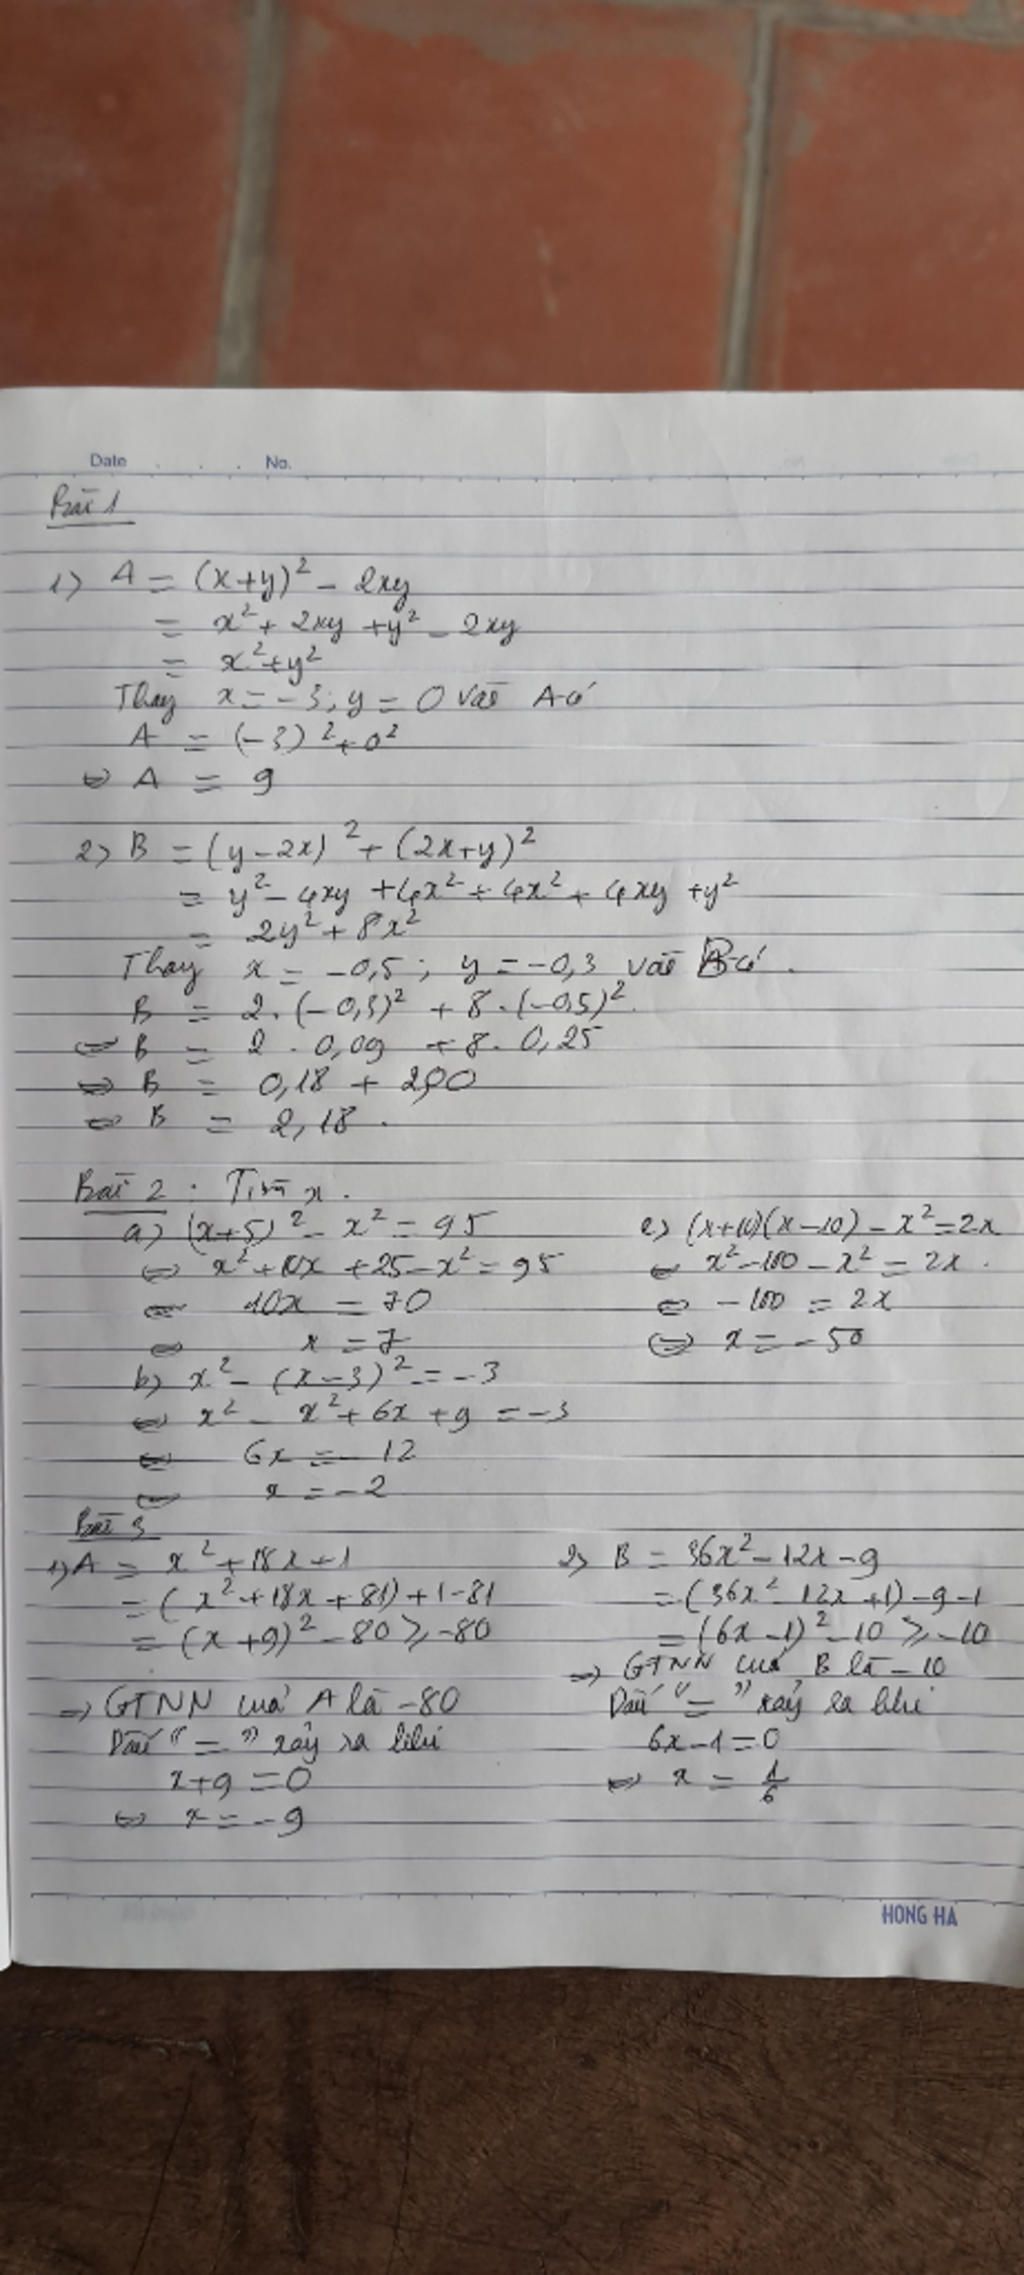 Date . . . No.
Bài 1
1) A = (x+y)² - 2xy
= x² + 2xy + y² - 2xy
= x² + y²
Thay x = -3; y = 0 vào A có
A = (-3)² + 0²
⇔ A = 9
2) B = (y-2x)² + (2x+y)²
= y² - 4xy + 4x² + 4x² + 4xy + y²
= 2y² + 8x²
Thay x = -0,5; y = -0,3 vào B có.
B = 2.(-0,3)² + 8.(-0,5)².
⇔ B = 2 . 0,09 + 8. 0,25
⇔ B = 0,18 + 2,00
⇔ B = 2,18.
Bài 2. Tìm x.
a) (x+5)² - x² = 95
⇔ x² + 10x + 25 - x² = 95
⇔ 10x = 70
⇔ x = 7
b) x² - (x-3)² = -3
⇔ x² - x² + 6x + 9 = -3
⇔ 6x = -12
⇔ x = -2
c) (x+10)(x-10) - x² = 2x
⇔ x² - 100 - x² = 2x.
⇔ -100 = 2x
⇔ x = -50
Bài 3
1) A = x² + 18x + 1
= (x² + 18x + 81) + 1 - 81
= (x+9)² - 80 ≥ -80
=> GTNN của A là -80
Dấu "=" xảy ra khi
x+9 = 0
⇔ x = -9
2) B = 36x² - 12x - 9
= (36x² - 12x + 1) - 9 - 1
= (6x-1)² - 10 ≥ -10
=> GTNN của B là -10
Dấu "=" xảy ra khi
6x - 1 = 0
⇔ x = 1/6
HONG HA